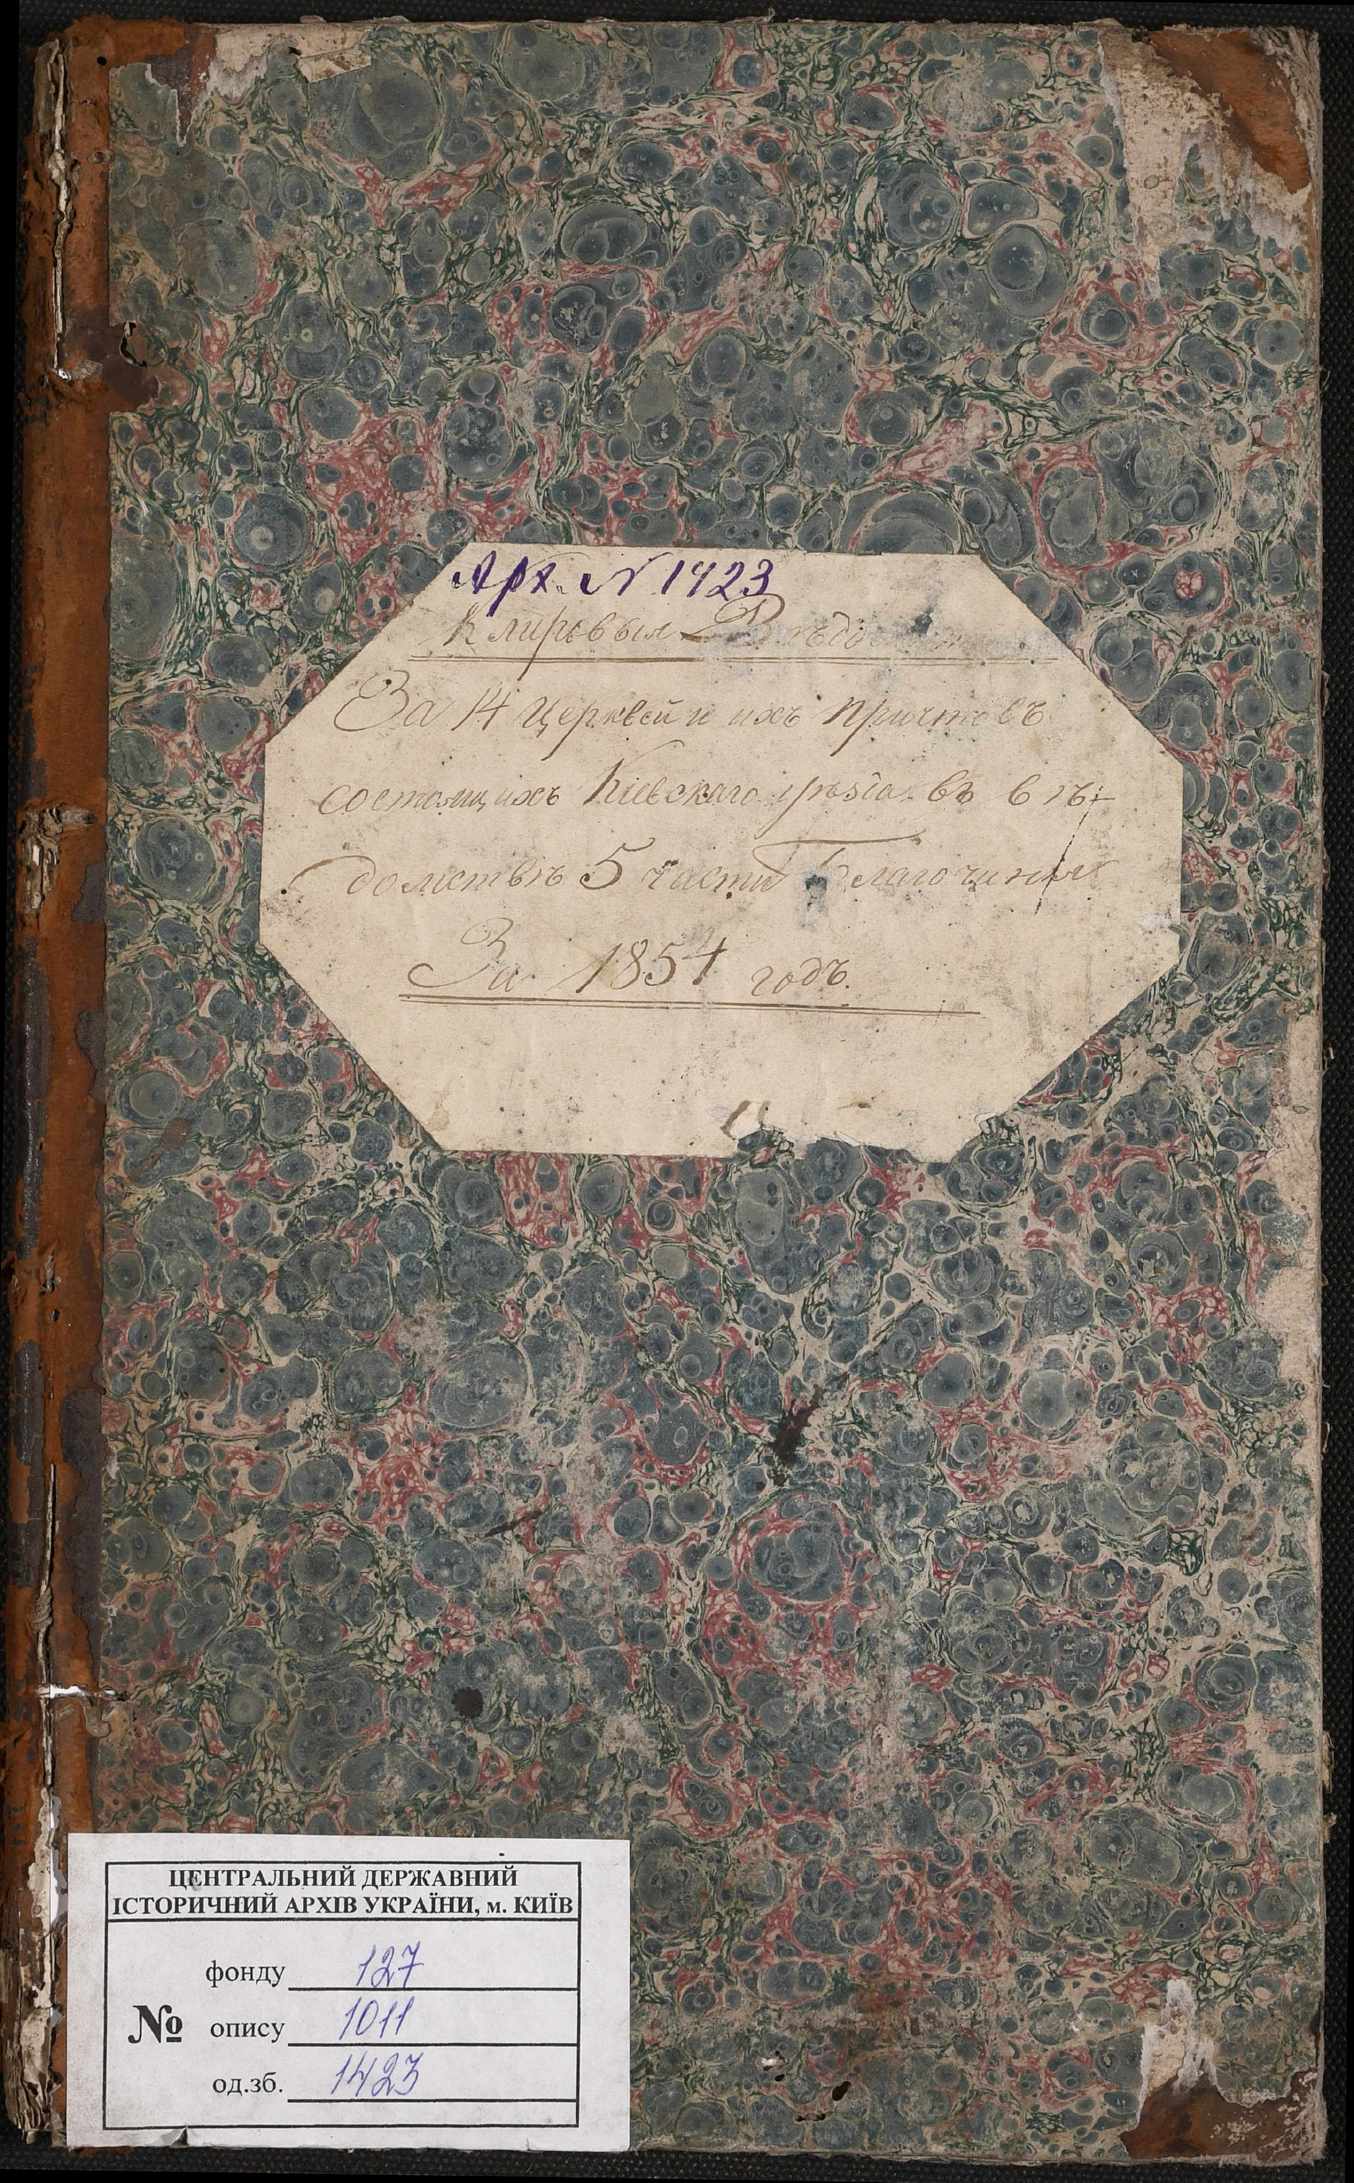 Арх. N 1423
Клировыя
За 14 Церквей и ихъ причтовъ
состоящихъ Кіевскаго уѣзда въ вѣ-
домствѣ 5 части Благочинія
За 1854 годъ.
ЦЕНТРАЛЬНИЙ ДЕРЖАВНИЙ
ІСТОРИЧНИЙ АРХІВ УКРАЇНИ, м. КИЇВ
фонду 127
№ опису 1011
од.зб. 1423